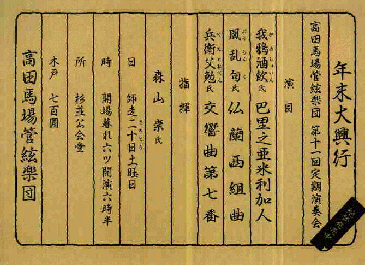 年末大興行
高田馬場管絃樂団 第十一回定期演奏会
演目
我鴉酒飲氏 巴里之亜米利加人
風乱句氏 仏蘭西組曲
兵衛父勉氏 交響曲第七番
指揮
森山崇氏
日 師走二十日土曜日
時 開場暮れ六ツ開演六時半
所 杉並公会堂
木戸 七百圓
高田馬場管絃樂団